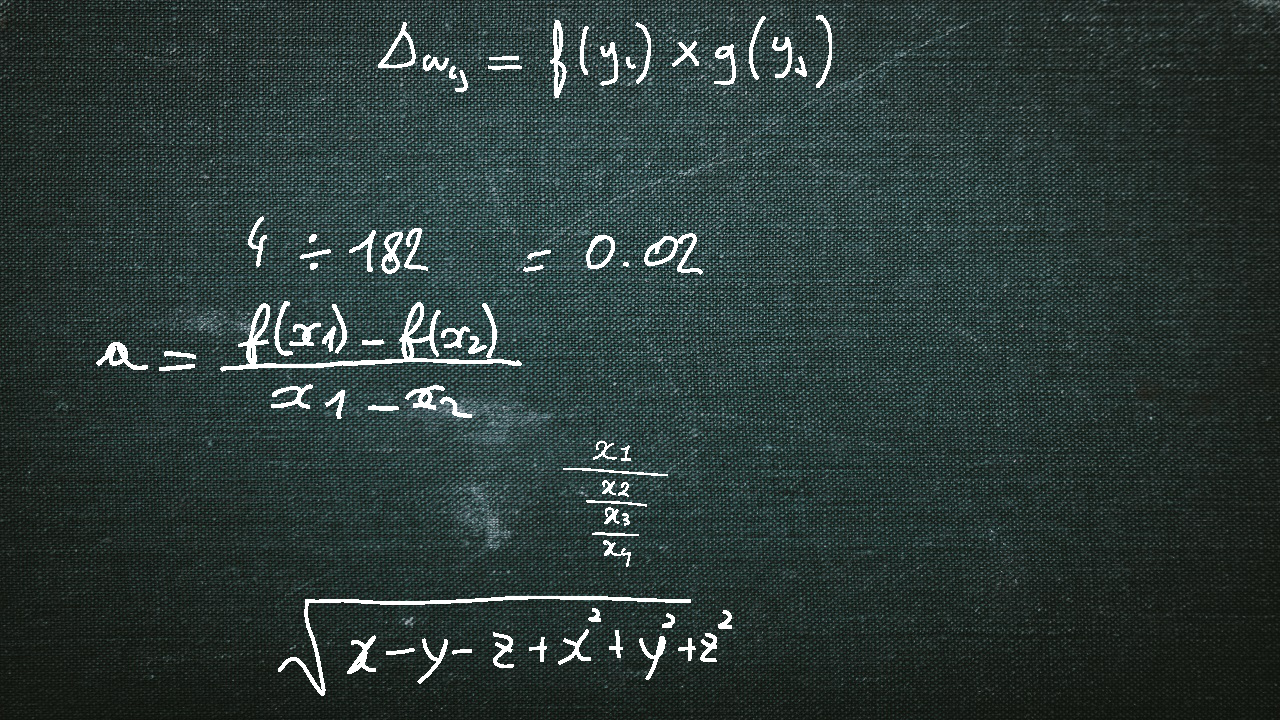 Δw_ij = f(y_i) × g(y_j)
4 ÷ 182 = 0.02
a = (f(x1) - f(x2)) / (x1 - x2)
x1
x2
x3
x4
√(x - y - z + x² + y²) + z²